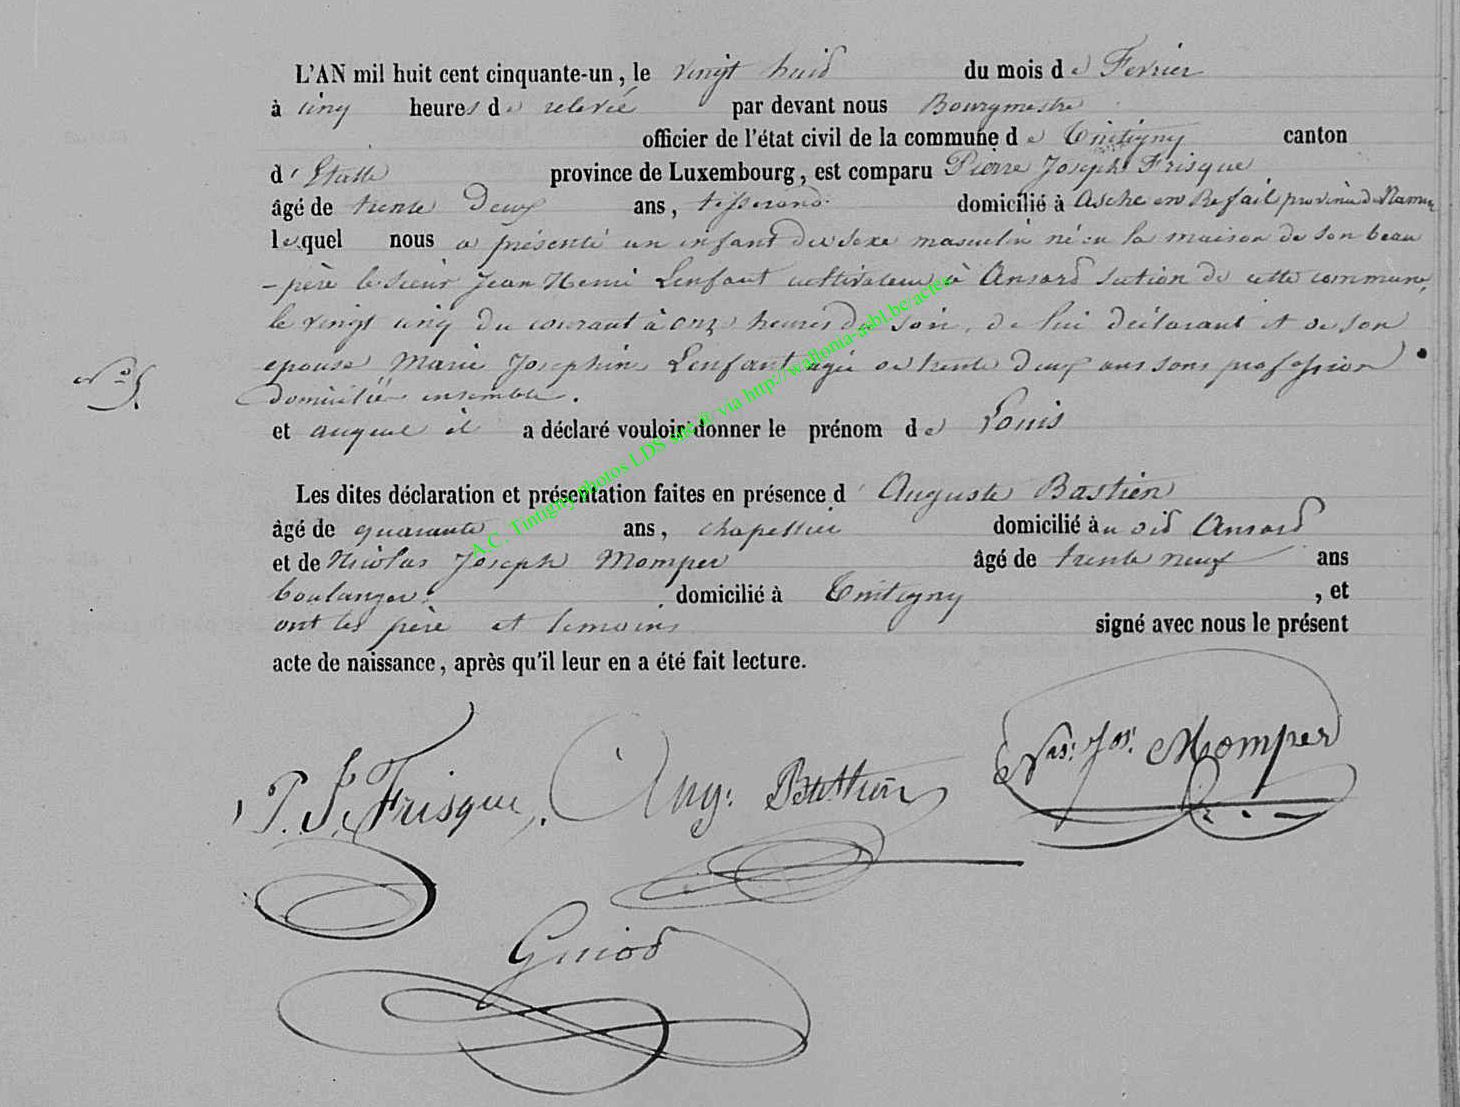 L'AN mil huit cent cinquante-un, le vingt huit du mois de Fevrier
à cinq heures de relevée par devant nous Bourgmestre
officier de l'état civil de la commune de Tintigny canton
d'Etalle province de Luxembourg, est comparu Pierre Joseph Frisque
âgé de trente deux ans, tisserand domicilié à Asche en Refail province de Namur
lequel nous a présenté un enfant du sexe masculin né en la maison de son beau
-père le sieur Jean Henri Lenfant cultivateur à Ansard section de cette commune,
le vingt cinq du courant à onze heures du soir, de lui déclarant et de son
N° 5. epouse Marie Josephine Lenfant agée de trente deux ans sans profession
domiciliée ensemble.
et auquel il a déclaré vouloir donner le prénom de Louis
Les dites déclaration et présentation faites en présence d' Auguste Bastien
âgé de quarante ans, chapellier domicilié à au dit Ansard
et de Nicolas Joseph Momper âgé de trente neuf ans
boulanger domicilié à Tintigny , et
ont les père et temoins signé avec nous le présent
acte de naissance, après qu'il leur en a été fait lecture.
P. J. Frisque. Aug: Bastien Nas: Jos: Momper
Guiod
A.C. Tintigny photos LDS via http://wallonia-asbl.be/actes